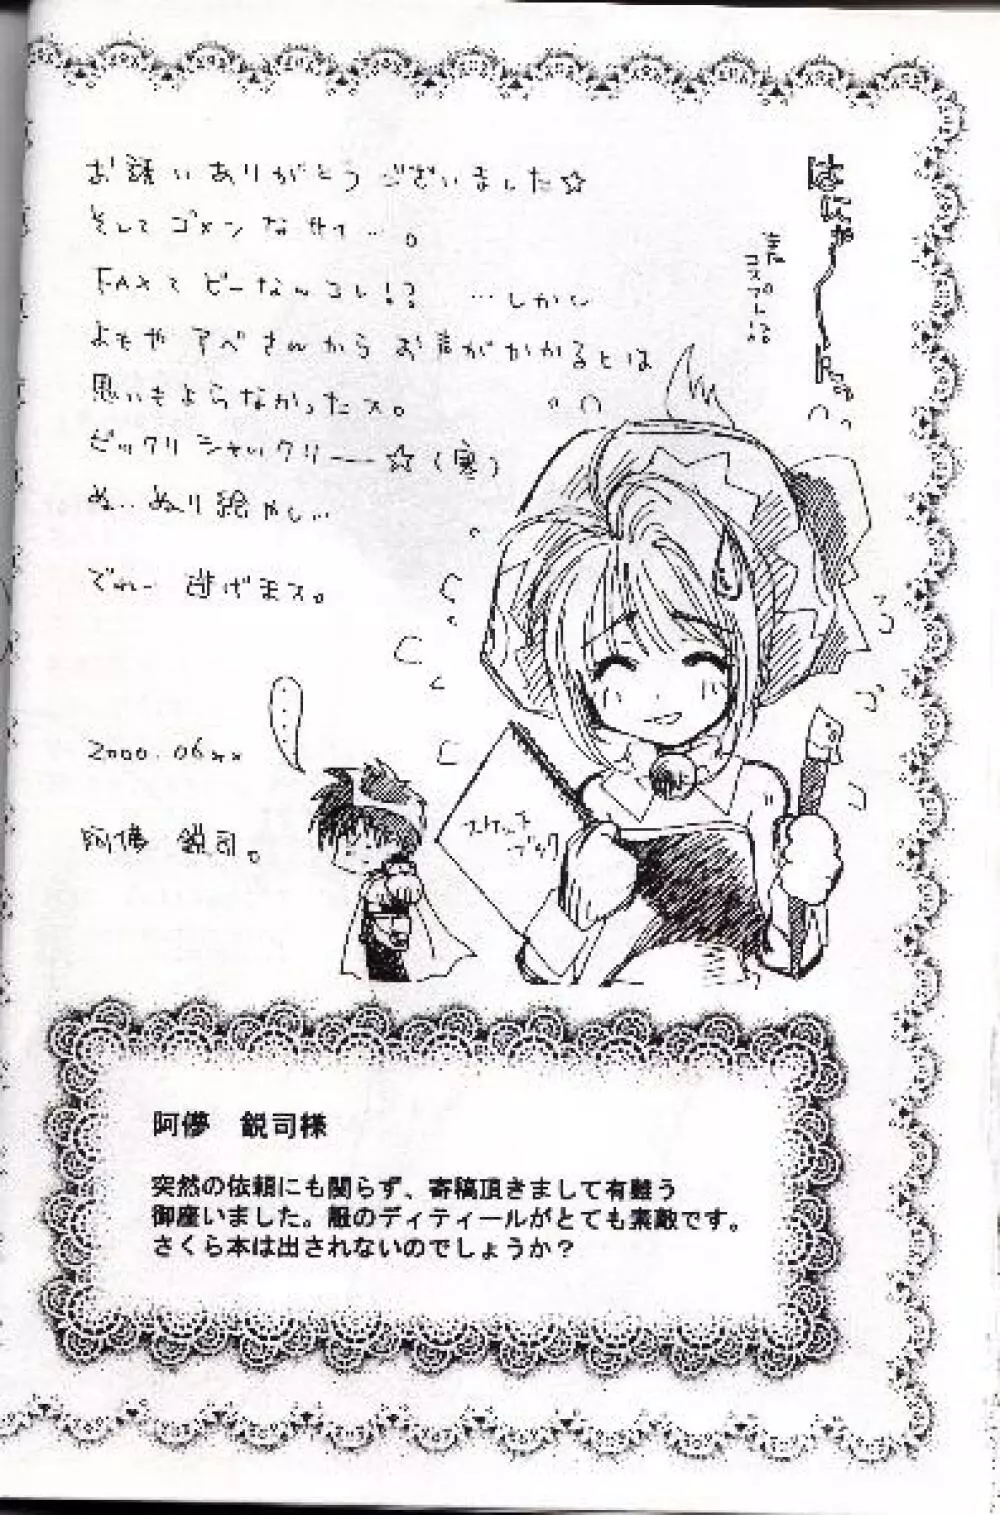 お誘いありがとうございました☆
そしてゴメンなサイ…。
FAXてどーなんコレ!? …しかし
よもやアベさんからお声がかかるとは
思いもよらなかったス。
ビックリシャックリ——☆(寒)
ぬ…ぬり絵やし…
でわ— 逃げまス。
2000.06
阿儚 鋭司。
はにゃ〜ん
スケッチ
ブック
阿儚 鋭司様
突然の依頼にも関らず、寄稿頂きまして有難う
御座いました。服のディティールがとても素敵です。
さくら本は出されないのでしょうか?